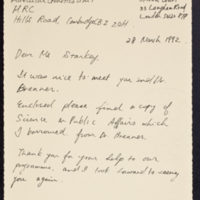 MRC
Hills Road, Cambridge CB2 2QH.
London
28 March 1992
Dear Ms Starkey,
It was nice to meet you and Dr.
Brenner.
Enclosed please find a copy of
Science & Public Affairs which
I borrowed from Dr. Brenner.
Thank you for your help to our
programme, and I look forward to seeing
you again.